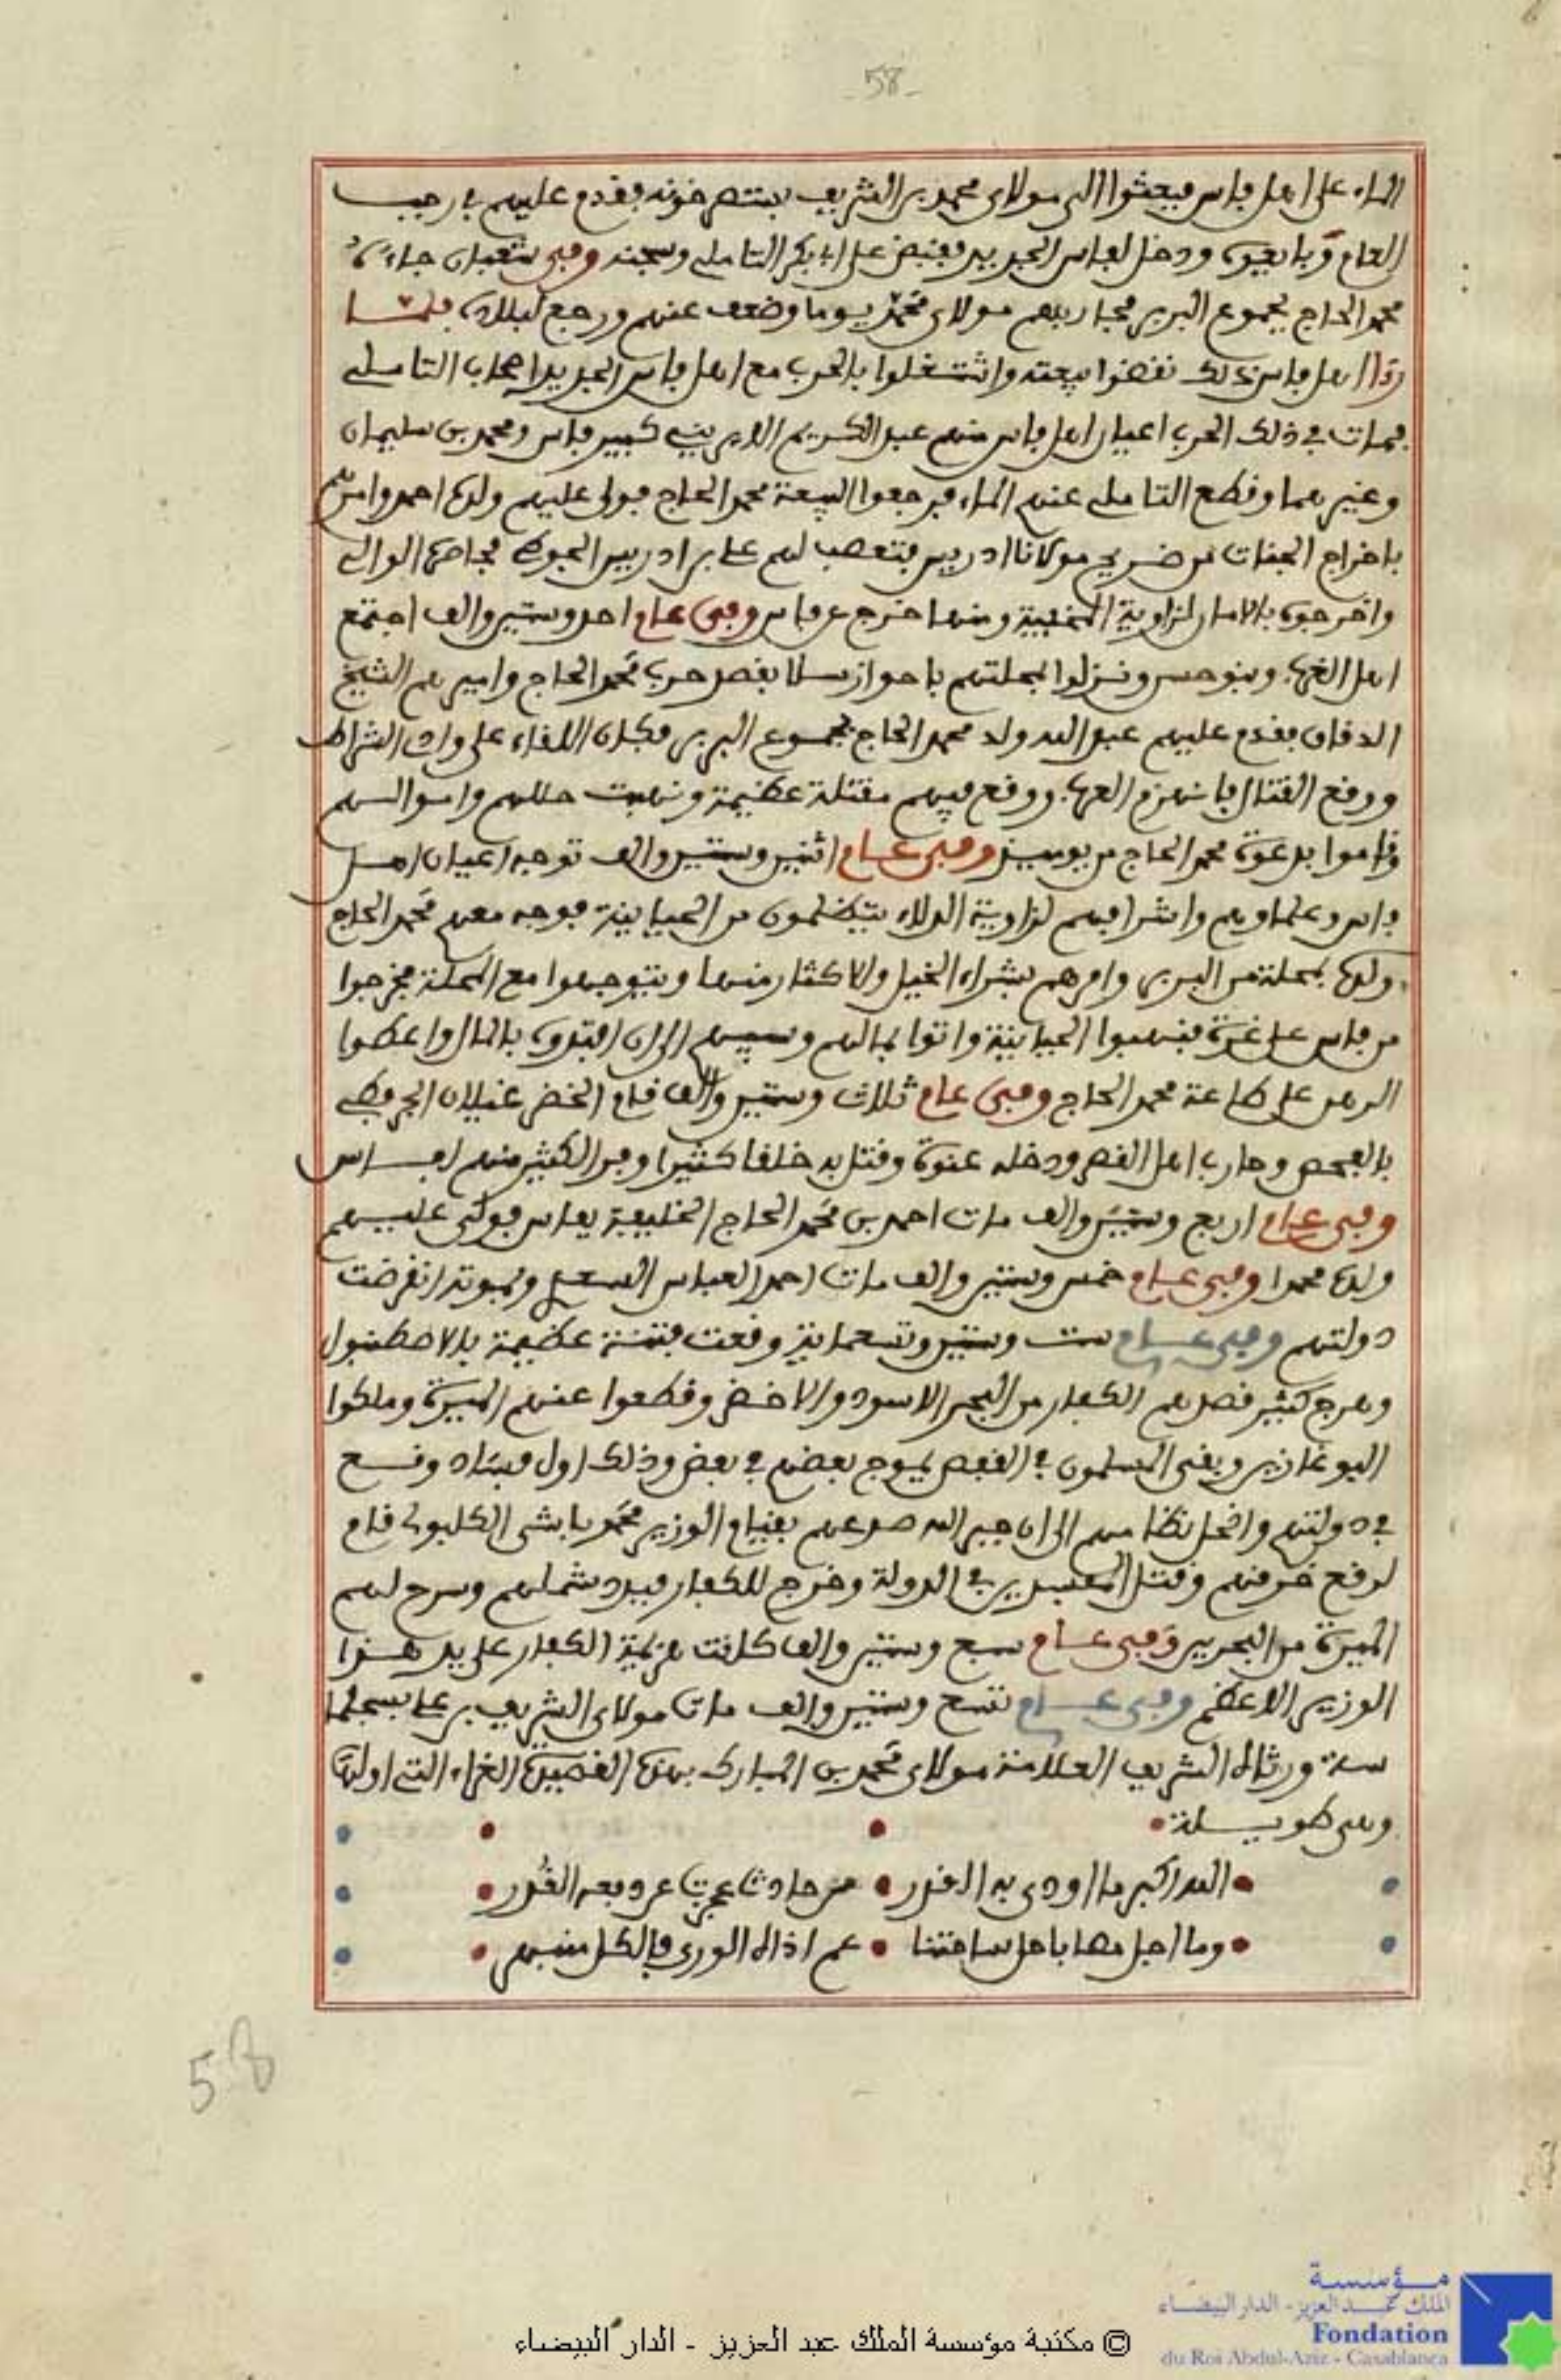 -58-
الماء على اهل فاس فبعثوا الى مولاي محمد بن الشريف يستصرخونه فقدم عليهم في رجب
العام وبايعوه ودخل لفاس الجديد فقبض على ابي بكر التاملي وسجنه وفي شعبان جاء
محمد الحاج بجموع البربر فحاربهم مولاي محمد يوما وضعف عنهم ورجع لبلاده فلما
رءا اهل فاس ذلك نقضوا بيعته واشتغلوا بالحرب مع اهل فاس الجديد اصحاب التاملي
فمات في ذلك الحرب اعيان اهل فاس منهم عبد الكريم كبير فاس ومحمد بن سليمان
وغيرهما وقطع التاملي عنهم الماء فرجعوا لبيعة محمد الحاج فولى عليهم ولده احمد وامرهم
باخراج الجنات من ضريح مولانا ادريس فتعصب لهم علي بن ادريس الجوطي الوالي
واخرجوه بالامان لزاوية المخفية ومنها خرج عن فاس وفي عام احد وستين والف اجتمع
اهل الغرب وبنو حسن ونزلوا بمحلتهم باحواز سلا بقصد حرب محمد الحاج واميرهم الشيخ
الدقاق فقدم عليهم عبد الله ولد محمد الحاج بجموع البربر فكان اللقاء على واد الشراط
ووقع القتال فانهزم الغرب ووقع فيهم مقتلة عظيمة ونهبت حللهم واموالهم
وقاموا بدعوة محمد الحاج من يومئذ وفي عام اثنين وستين والف توجه اعيان اهل
فاس وعلماوهم واشرافهم لزاوية الدلاء يتظلمون من الحياينة فوجه معهم محمد الحاج
ولده بمحلة من البربر وامرهم بشراء الخيل والاكثار منها ويتوجهوا مع المحلة فخرجوا
من فاس على غرة فنهبوا الحياينة واتوا بمالهم وسبيهم الى ان افتدوه بالمال واعطوا
الرهن على طاعة محمد الحاج وفي عام ثلاث وستين والف قام الخضر غيلان الجرفطي
بالفحص وحارب اهل القصر ودخله عنوة وقتل به خلقا كثيرا وفر الكثير منهم لفاس
وفي عام اربع وستين والف مات احمد بن محمد الحاج الخليفة بفاس فولى عليهم
ولده محمدا وفي عام خمس وستين والف مات احمد العباس السعدي وبموته انقرضت
دولتهم وفي عام ست وستين وتسعماية وقعت فتنة عظيمة بالاصطنبول
وهرج كثير قصدهم الكفار من البحر الاسود والاخضر وقطعوا عنهم الميرة وملكوا
البوغازين وبقي المسلمون في القفص يموج بعضهم في بعض وذلك اول فساد وقع
في دولتهم وانحل نظامهم الى ان جبر الله صدعهم بقيام الوزير محمد باشى الكلبولي قام
لرقع خرقهم وقتل المفسدين في الدولة وخرج للكفار فبدد شملهم وسرح لهم
الميرة من البحرين وفي عام سبع وستين والف كانت هزيمة الكفار على يد هذا
الوزير الاعظم وفي عام تسع وستين والف مات مولاي الشريف بن علي بسجلما
سة ورثاه الشريف العلامة مولاي محمد بن المبارك بهذه القصيدة الغراء التي اولها
وهي طويلة
الله اكبر ما اودى به القدر من حادث عجزت عن دفعه القدر
وما اجل مصابا حل ساحتنا عم اذاه الورى فالكل منبهر
58
© مكتبة مؤسسة الملك عبد العزيز - الدار البيضاء
مؤسسة
الملك عبد العزيز - الدار البيضاء
Fondation
du Roi Abdul-Aziz - Casablanca